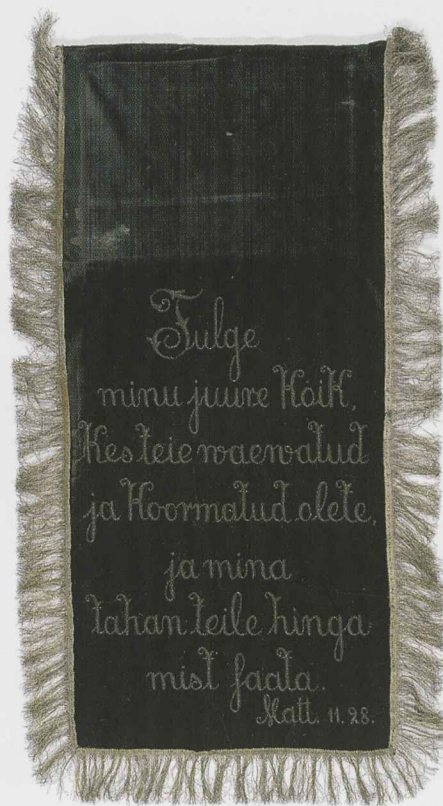 Tulge
minu juure kõik,
kes teie waewatud
ja koormatud olete,
ja mina
tahan teile hinga-
mist saata.
Matt. 11.28.